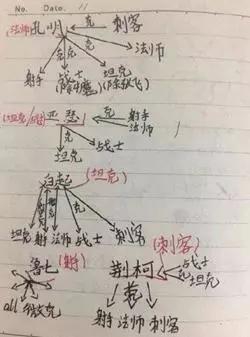 No. Date. 11
(法师)孔明 克 刺客
克 克 克 法师
射手 战士 坦克
(除牛魔) (除张飞)
(坦克/战士) 亚瑟 克 射手
法师
克 克
坦克 战士
白起 (坦克)
克
坦克 射手 法师 战士 刺客
鲁七 (射手) 荆轲 (刺客)
克 战士
坦克
all 被克 克
射手 法师 刺客